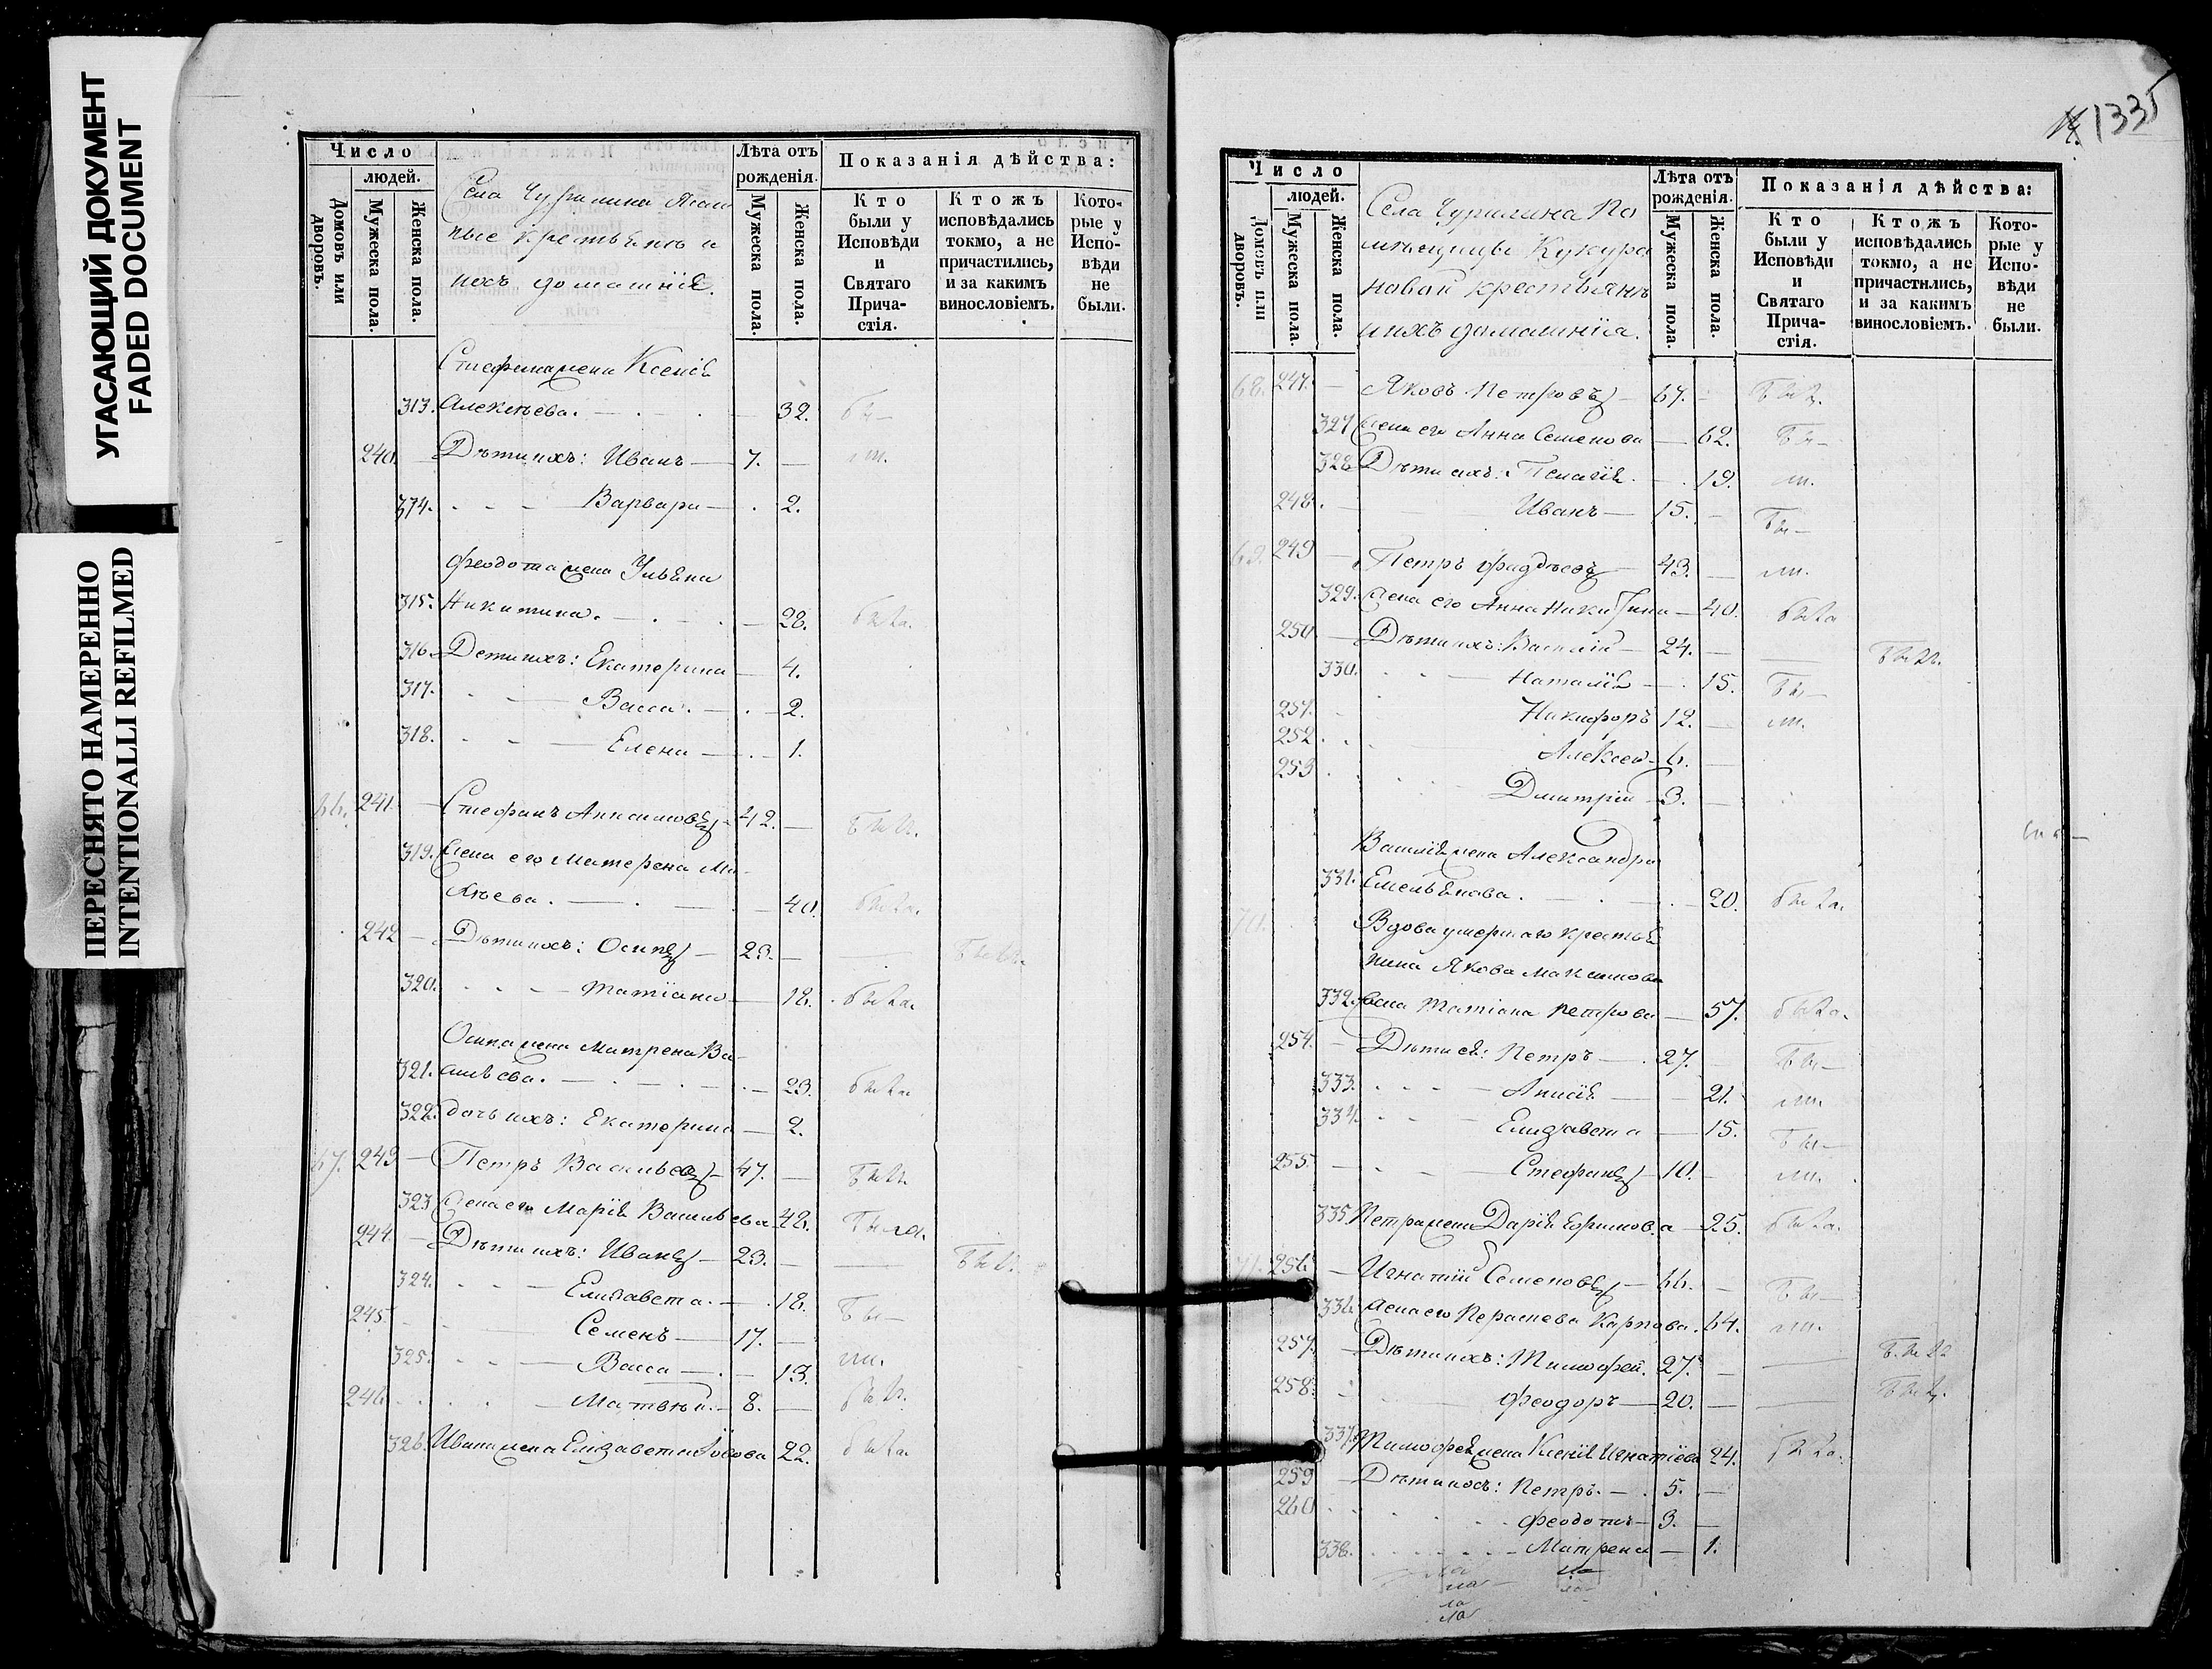 УГАСАЮЩИЙ ДОКУМЕНТ
FADED DOCUMENT
ПЕРЕСНЯТО НАМЕРЕННО
INTENTIONALLI REFILMED
Число
людей.
Домовъ или дворовъ.
Мужеска пола.
Женска пола.
Села Чурилина
крестьяне и
ихъ домашніе.
Лѣта отъ рожденія.
Мужеска пола.
Женска пола.
Показанія дѣйства:
Кто были у Исповѣди и Святаго Причастія.
Ктожъ исповѣдались токмо, а не причастились, и за какимъ винословіемъ.
Которые у Исповѣди не были.
Стефана жена Ксенія
313. Алексѣева. 32.
240. Дѣти ихъ: Иванъ 7.
374. Варвара 2.
Феодота жена Ульяна
315. Никитина. 28. была
316. Дети ихъ: Екатерина 4.
317. Васса 2.
318. Елена 1.
66. 241 Стефанъ Анисимовъ 42.
319. Жена его Матерена Ми-
хѣева. 40. была
242 Дѣти ихъ: Осипъ 23.
320. Татіана 18. была
Осипа жена Матрена Ва-
321. сильева. 23. была
322. дочь ихъ: Екатерина 2.
67. 243 Петръ Васильевъ 47.
323 Жена его Марія Васильева 48. была
244 Дѣти ихъ: Иванъ 23.
324. Елизавета. 18. бы
245 Семенъ 17.
325. Васса 13.
246 Матвѣй 8.
326. Ивана жена Елизавета 22. была
1335
Число
людей.
Домовъ или дворовъ.
Мужеска пола.
Женска пола.
Села Чурилина По
мѣщицы Кукура
новой крестьянъ
и ихъ домашнія.
Лѣта отъ рожденія.
Мужеска пола.
Женска пола.
Показанія дѣйства:
Кто были у Исповѣди и Святаго Причастія.
Ктожъ исповѣдались токмо, а не причастились, и за какимъ винословіемъ.
Которые у Исповѣди не были.
68. 247. Яковъ Петровъ 67.
327 Жена его Анна Семенова 62. бы
328 Дѣти ихъ: Пелагія 19.
248. Иванъ 15. бы
69. 249 Петръ Фаддѣевъ 43.
329. Жена его Анна Никитина 40. была
250 Дѣти ихъ: Василій 24.
330. Наталія 15. бы
251. Никифоръ 12.
252 Алексей 6.
253 Дмитрій 3.
Василія жена Александра
331. Емельянова. 20. была
70. Вдова умершаго крестья
нина Якова Максимова
332. жена Татіана Петрова 57. была
254. Дѣти ея: Петръ 27. бы
333. Анисія 21.
334. Елизавета 15. бы
255 Стефанъ 10.
335. Петра жена Дарія Ефимова 25. была
71. 256 Игнатій Семеновъ 66. бы
336. Жена его Параскева Карпова. 64.
257. Дѣти ихъ: Тимофей. 27.
258. Феодоръ 20.
337. Тимофея жена Ксенія Игнатіева 24.
259 Дѣти ихъ: Петръ. 5.
260 Феодотъ 3.
338. Матрена 1.